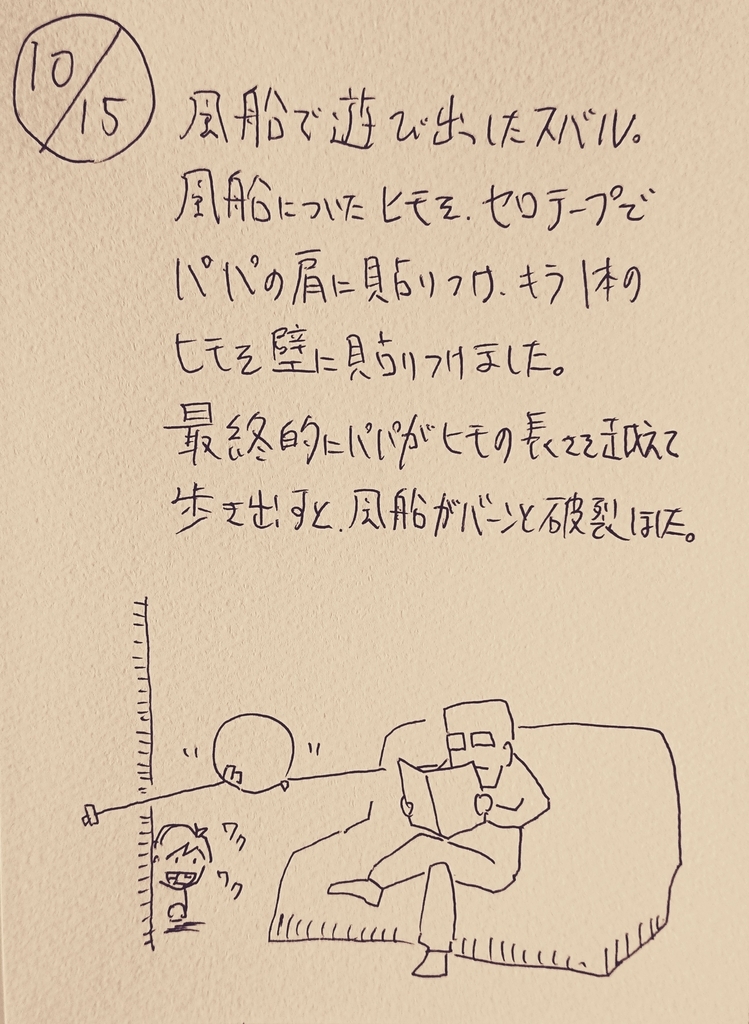 10/15
風船で遊び出したスバル。
風船についたヒモを、セロテープで
パパの肩に貼りつけ、もう1本の
ヒモを壁に貼りつけました。
最終的にパパがヒモの長さを越えて
歩き出すと、風船がバーンと破裂しました。
ワク
ワク